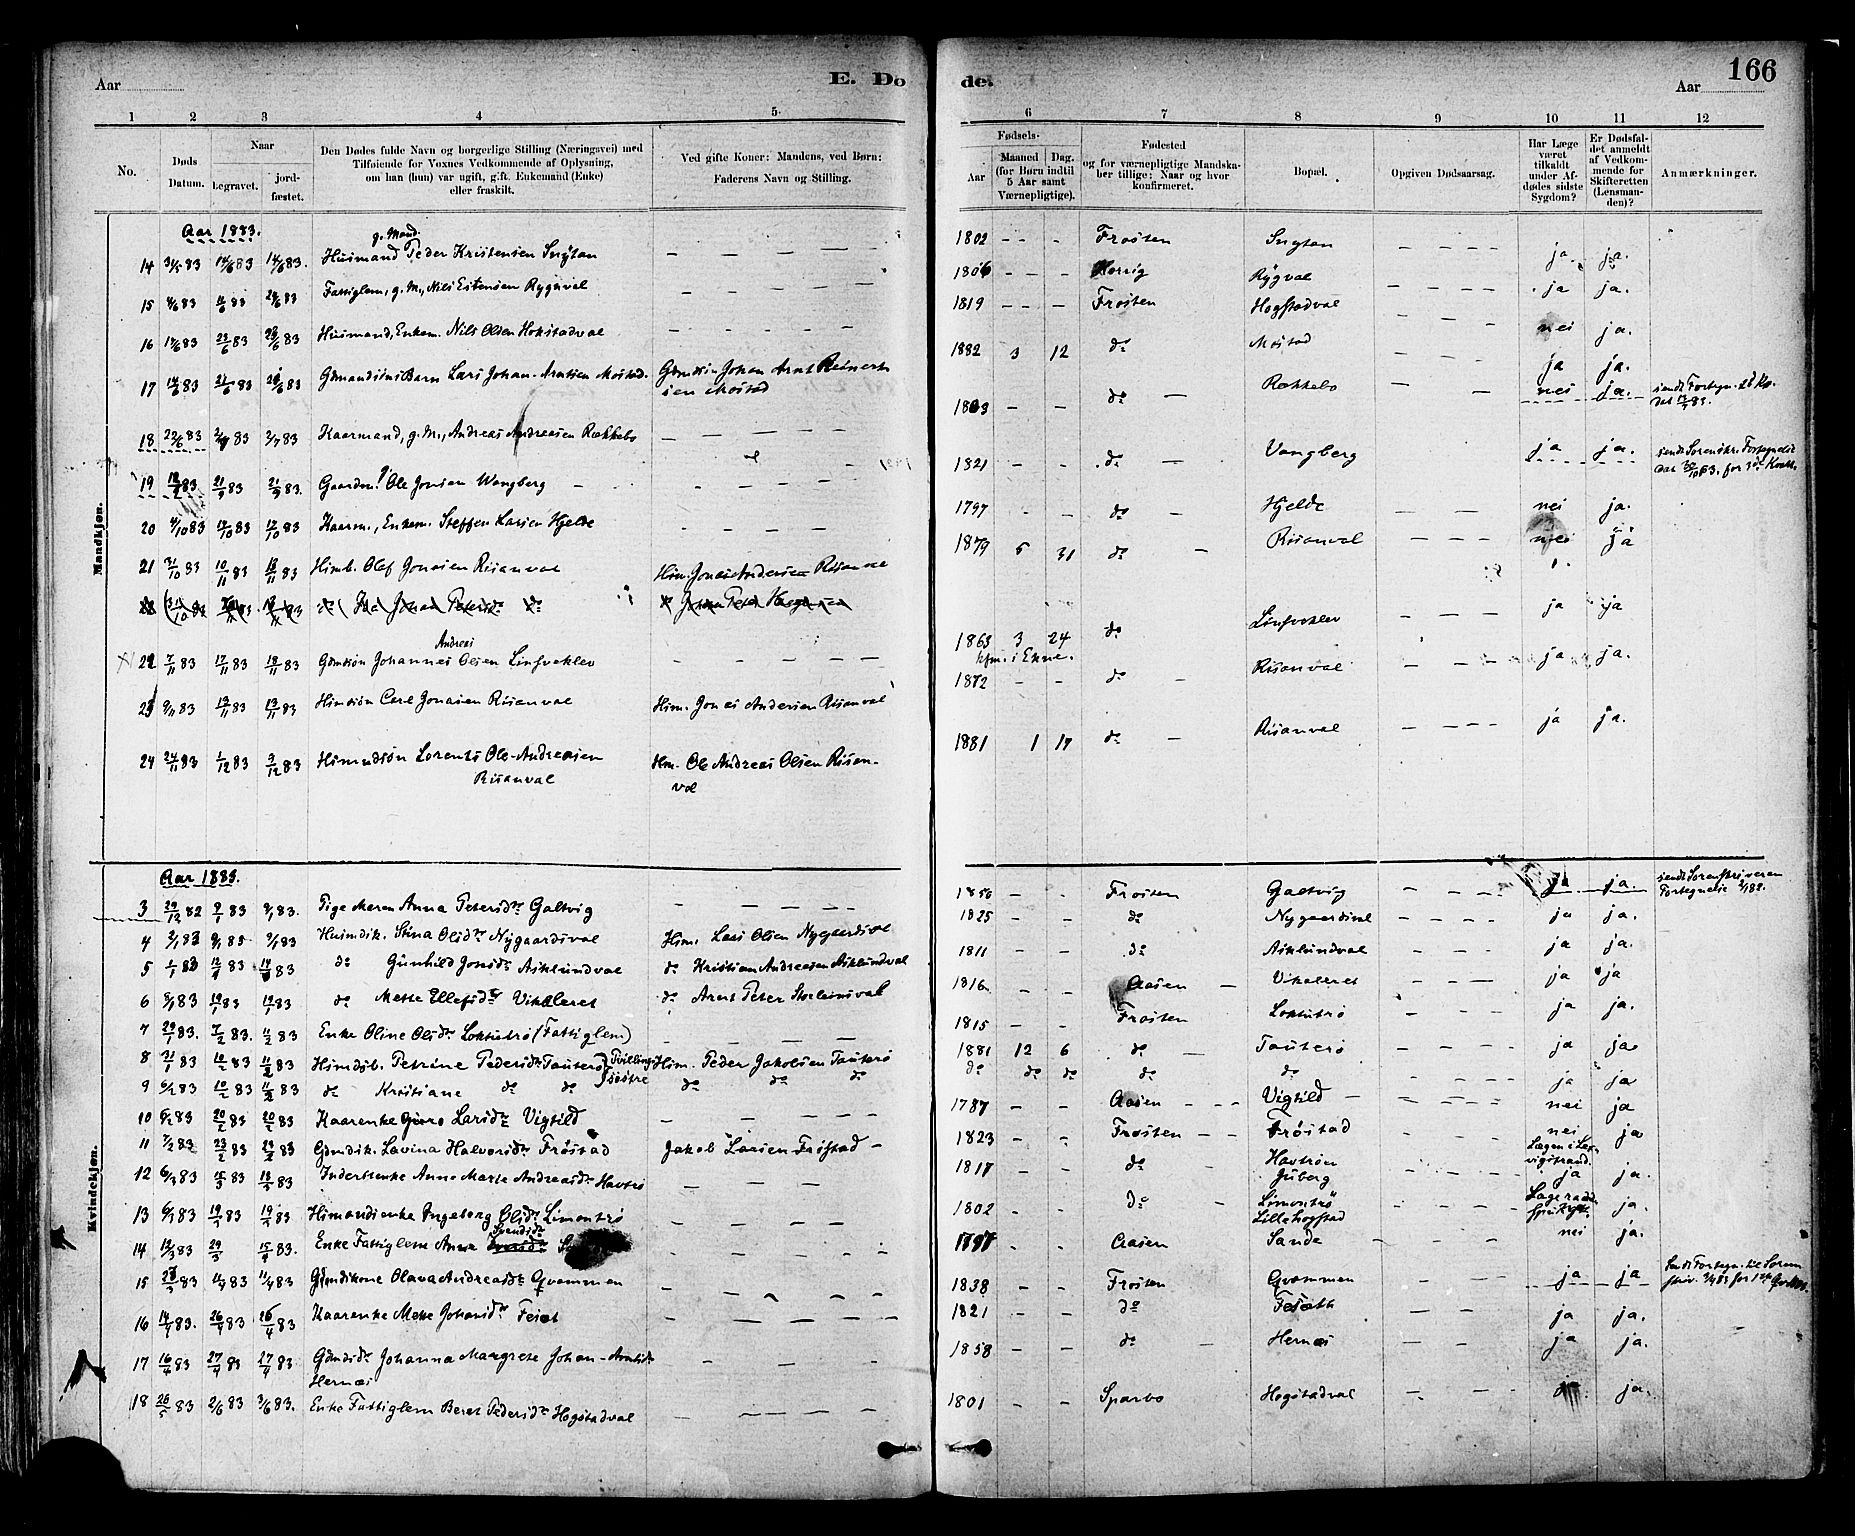 Aar
E. Dø
de.
Aar
166
1 2 3 4 5. 6 7 8 9 10 11 12
No.
Døds Datum.
Naar
begravet.
jord-fæstet.
Den Dødes fulde Navn og borgerlige Stilling (Næringsvei) med
Tilføiende for Voxnes Vedkommende af Oplysning,
om han (hun) var ugift, gift. Enkemand (Enke)
eller fraskilt.
Ved gifte Koner: Mandens, ved Børn:
Faderens Navn og Stilling.
Fødsels-
Aar
Maaned Dag.
(for Børn indtil
5 Aar samt
Værnepligtige).
Fødested
og for værnepligtige Mandska-
ber tillige: Naar og hvor
konfirmeret.
Bopæl.
Opgiven Dødsaarsag.
Har Læge
været
tilkaldt
under Af-
dødes sidste
Sygdom?
Er Dødsfal-
det anmeldt
af Vedkom-
mende for
Skifteretten
(Lensman-
den)?
Anmærkninger.
Mandkjøn.
Aar 1883.
g. Mand
14 31/5 83 14/6 83 14/6 83. Husmand Peder Kristensen Sugtan — — — — 1802 — — — Frosten Sugtan — — — — ja. ja.
15 4/6 83 11/6 83 24/6 83 Fattiglem, g. M., Nils Estensen Rygval — — — — 1806 — — — Rygval — — — — ja ja.
16 17/6 83 23/6 83 23/6 83 Husmand, Enkem. Nils Olsen Hokstadval — — — — 1819 — — — Frosten Hogstadval — — — nei ja.
17 14/6 83 21/6 83 21/6 83 Gdmandsøns Barn Lars Johan Arntsen Mostad. Gdmdsøn Johan Arnt Reinert-
sen Mostad 1882 3 12 do Mostad ja ja.
18 22/6 83 2/7 83 2/7 83 Kaarmand, g. M., Andreas Andreasen Rekkebo — — — — 1803 — — do — Rekkebo — — nei ja. sendt Fortegn.
19 83 21/9 83 21/9 83. Gaardm. Ole Jonsen Wangberg — — — — 1821 — — do — Vangberg ja ja. sendt Sorenskr. Fortegnelse
20 4/10 83 12/10 83 12/10 83 Kaarm., Enkem. Steffen Larsen Hjelde — — — 1797 — — do — Hjelde — — nei ja.
21 31/10 83 10/11 83 18/11 83 Himb. Olaf Jonasen Risanval Hism. Jonas Andersen Risanval 1879 5 31 do — Risanval — — — nei ja
Andreas
22 7/11 83 17/11 83 18/11 83 Gdmdsøn Johannes Olsen Linsvoklev — — — — 1863 3 24 do Linsvoklev — — — ja ja
kfm. i Ekne.
23 9/11 83 13/11 83 13/11 83 Himdsøn Carl Jonasen Risanval Him. Jonas Andersen Risanval 1872 — — do — Risanval — — — ja ja.
24 24/11 83 1/12 83 3/12 83 Himndsøn Lorents Ole-Andreasen
Risanval Hm. Ole Andreas Olsen Risan-
val 1881 1 17 do — Risanval — — — ja ja.
Kvindekjøn.
Aar 1883.
3 29/12 82 9/1 83 9/1 83. Pige Meren Anna Petersdtr Galtvig — — — — 1856 — — Frosten Galtvig — — — ja ja. sendt Sorenskriveren
Fortegnelse
4 2/1 83 9/1 83 9/1 83 Husmdk. Stina Olsdtr Nygaardsval Him. Lars Olsen Nygaardsval 1825 — — do Nygaardsval — — — ja ja.
5 1/1 83 12/1 83 14/1 83 do Gunhild Jonsdtr Asklundval do Kristian Andreasen Asklundval 1811 — — do. Asklundval — — — ja ja.
6 8/1 83 19/1 83 19/1 83 do Mette Ellefsdtr Vikaleret do Arnt Peter Stolensval 1816 — — Aasen — Vikaleret — — — ja ja
7 29/1 83. 7/2 83. 11/2 83 Enke Oline Olsdtr Loktutrø (Fattiglem) — — — — 1815 — — Frosten Loktutrø — — — ja ja.
8 31/1 83 10/2 83 11/2 83 Himdsb. Petrine Pedersdtr Tautersø Tvillings- Him. Peder Jakobsen Tautersø 1881 12 6 do — Tautersø — — — ja ja
9 6/2 83 10/2 83 11/2 83 do Kristiane do do søstre do do do do do do do do ja ja
10 6/2 83 20/2 83 20/2 83 Kaarenke Guro Larsdtr Vigtild — — — — 1787 — — Aasen — — Vigtild — nei ja
11 7/2 83 23/2 83 23/2 83 Gdmdk. Lavina Halvorsdtr Frøstad Jakob Larsen Frøstad — 1823 — — Frosten — — Frøstad — — — nei ja
Lægen i Lev-
vigstrand.
12 6/3 83 15/3 83 18/3 83 Inderstenke Anna Marta Andreasdtr Havtrø — — — — 1817 — — do — Havtrøen
Juberg — — — ja ja.
13 6/3 83 19/3 83 19/3 83 Himandsenke Ingeborg Olsdtr Limontrø — — — — 1802 — — do — Limontrø
Lillehogstad — — — ja.
14 12/3 83 29/3 15/4 83. Enke Fattiglem Anna Svendsdtr — — — — 1797 — — Aasen Sande — — — nei ja.
15 83 11/4 83 11/4 83 Gdmdkone Olava Andreasdtr Qvammen — — — — 1838 — — Frosten Qvammen — — — ja ja Sendt Fortegn. til Soren-
skriv.
16 14/4 83. 26/4 83 26/4 83 Kaarenke Mette Johansdtr Feset — — — — 1821 — — do Feseth — — ja ja.
17 16/4 83 27/4 83 27/4 83 Gdmdsdtr Johanna Margrete Johan-Arntsdtr
Hernes — — — — 1858 — — do — Hernes — — — ja ja.
18 26/5 83 2/6 83 3/6 83. Enke Fattiglem Beret Pedersdtr Hogstadval — — — — 1801 — — Sparbo Hogstadval — — — ja ja.